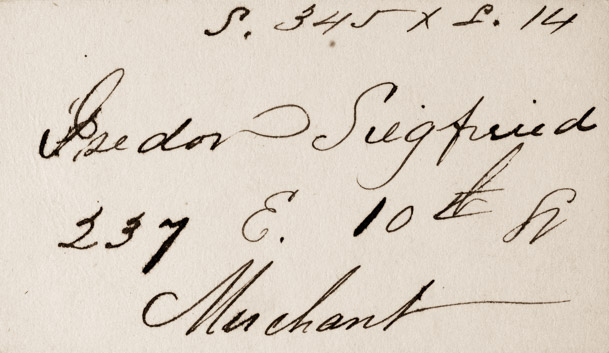 S. 345 x L. 14
Isedor Siegfried
237 E. 10th St
Merchant